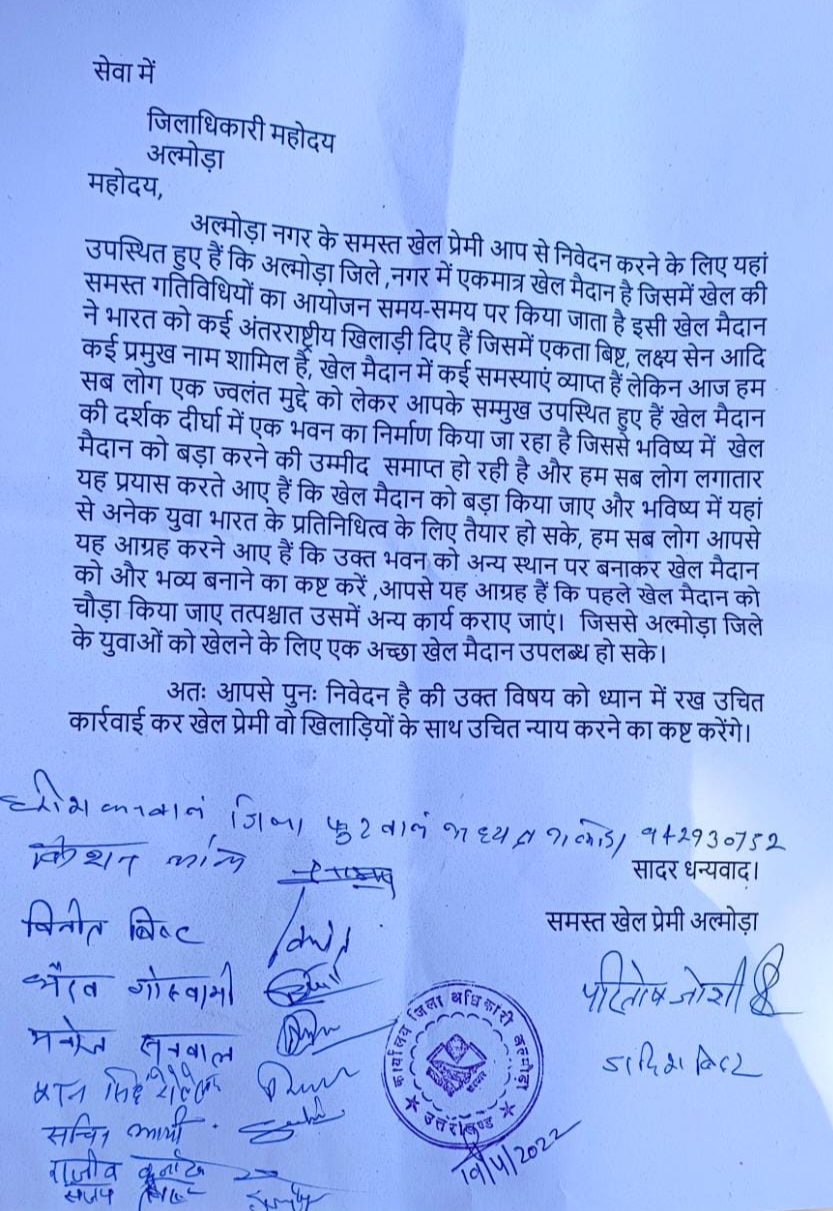 सेवा में
जिलाधिकारी महोदय
अल्मोड़ा
महोदय,
अल्मोड़ा नगर के समस्त खेल प्रेमी आप से निवेदन करने के लिए यहां
उपस्थित हुए हैं कि अल्मोड़ा जिले ,नगर में एकमात्र खेल मैदान है जिसमें खेल की
समस्त गतिविधियों का आयोजन समय-समय पर किया जाता है इसी खेल मैदान
ने भारत को कई अंतरराष्ट्रीय खिलाड़ी दिए हैं जिसमें एकता बिष्ट, लक्ष्य सेन आदि
कई प्रमुख नाम शामिल है, खेल मैदान में कई समस्याएं व्याप्त हैं लेकिन आज हम
सब लोग एक ज्वलंत मुद्दे को लेकर आपके सम्मुख उपस्थित हुए हैं खेल मैदान
की दर्शक दीर्घा में एक भवन का निर्माण किया जा रहा है जिससे भविष्य में खेल
मैदान को बड़ा करने की उम्मीद समाप्त हो रही है और हम सब लोग लगातार
यह प्रयास करते आए हैं कि खेल मैदान को बड़ा किया जाए और भविष्य में यहां
से अनेक युवा भारत के प्रतिनिधित्व के लिए तैयार हो सके, हम सब लोग आपसे
यह आग्रह करने आए हैं कि उक्त भवन को अन्य स्थान पर बनाकर खेल मैदान
को और भव्य बनाने का कष्ट करें ,आपसे यह आग्रह हैं कि पहले खेल मैदान को
चौड़ा किया जाए तत्पश्चात उसमें अन्य कार्य कराए जाएं। जिससे अल्मोड़ा जिले
के युवाओं को खेलने के लिए एक अच्छा खेल मैदान उपलब्ध हो सके।
अतः आपसे पुनः निवेदन है की उक्त विषय को ध्यान में रख उचित
कार्रवाई कर खेल प्रेमी वो खिलाड़ियों के साथ उचित न्याय करने का कष्ट करेंगे।
जिला फुटवाल 942930752
सादर धन्यवाद।
किशन लाल
समस्त खेल प्रेमी अल्मोड़ा
विनीत बिष्ट
भैरव गोस्वामी
परितोष जोशी
मनोज सनवाल
सचिन आर्या
राजीव कर्नाटक
संजय बिष्ट
कार्यालय जिला अधिकारी अल्मोड़ा
उत्तराखण्ड
19/4/2022